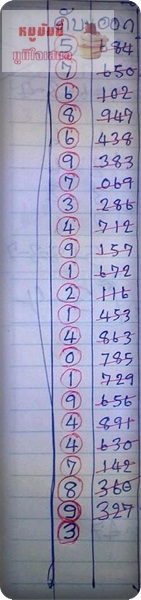 ดับยอด
หมูมันนี่
มูมีโอเสลอ
5 684
7 650
6 102
8 947
6 438
9 383
7 069
3 286
4 712
9 157
1 672
2 116
1 453
4 863
0 785
1 729
9 656
4 891
4 630
7 142
8 360
9 327
3